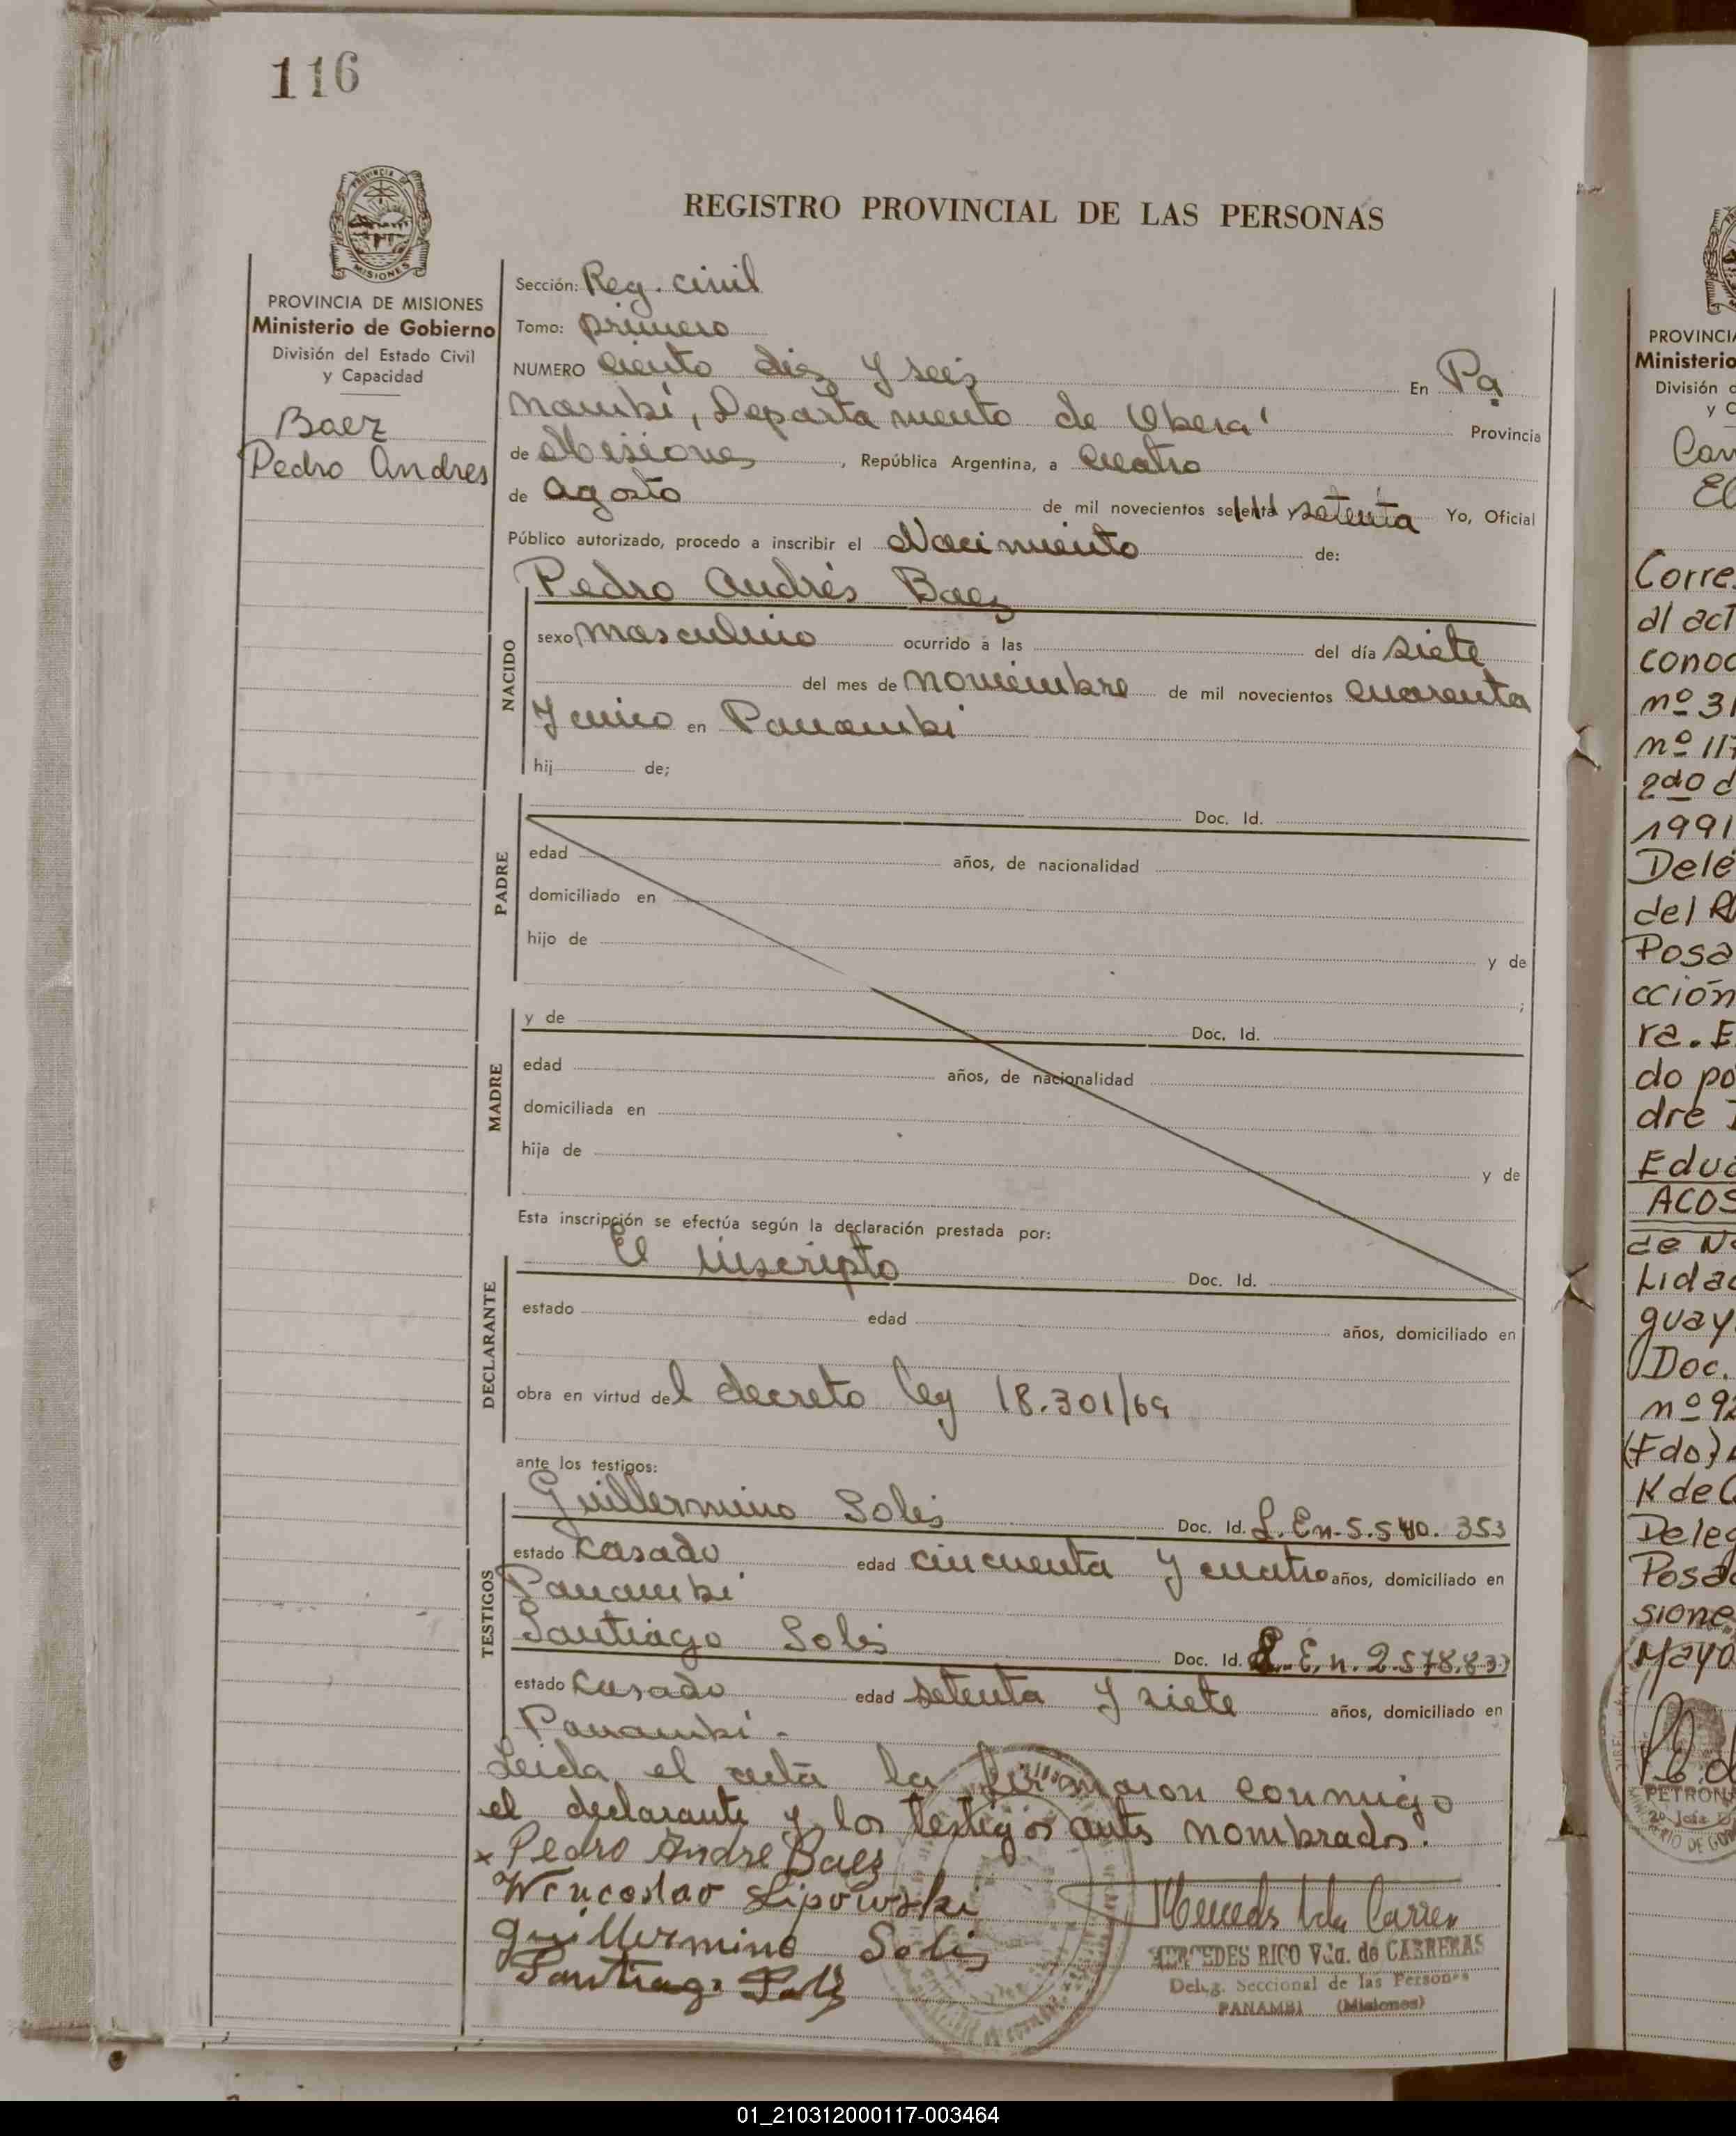 116
PROVINCIA DE MISIONES
REGISTRO PROVINCIAL DE LAS PERSONAS
PROVINCIA DE MISIONES
Ministerio de Gobierno
División del Estado Civil
y Capacidad
Baez
Pedro Andres
Sección: Reg. civil
Tomo: primero
NUMERO ciento diez y seis En Pa
nambí, Departamento de Oberá Provincia
de Misiones, República Argentina, a cuatro
de agosto de mil novecientos sesenta y setenta Yo, Oficial
Público autorizado, procedo a inscribir el Nacimiento de:
Pedro Andrés Baez
NACIDO
sexo masculino ocurrido a las del día siete
del mes de noviembre de mil novecientos cuarenta
y cinco en Panambí
hij de;
PADRE
Doc. Id.
edad años, de nacionalidad
domiciliado en
hijo de y de
;
MADRE
y de Doc. Id.
edad años, de nacionalidad
domiciliada en
hija de y de
Esta inscripción se efectúa según la declaración prestada por:
DECLARANTE
El inscripto Doc. Id.
estado edad años, domiciliado en
obra en virtud del decreto ley 18.301/69
ante los testigos:
TESTIGOS
Guillermino Solis Doc. Id. L. En-5.540.353
estado casado edad cincuenta y cuatro años, domiciliado en
Panambí
Santiago Solis Doc. Id. L. E. n. 2.578.833
estado casado edad setenta y siete años, domiciliado en
Panambí.-
Leida el acta la firmaron conmigo
el declarante y los testigos antes nombrados.
x Pedro Andre Baez
Wenceslao Lipowski
Guillermino Solis
Santiago Solis
MERCEDES RICO Vda. de CARRERAS
Deleg. Seccional de las Personas
PANAMBI (Misiones)
PROVINCIA
Ministerio
División d
y C
Corre
al act
conoc
nº 31
nº 117
2do d
1991
Dele
del R
Posa
cción
ra. E
do po
dre
Edua
ACOS
de N
Lidad
guay
Doc.
nº 92
(Fdo)
K de C
Deleg
Posad
sione
Mayo
PETRONA
01_210312000117-003464